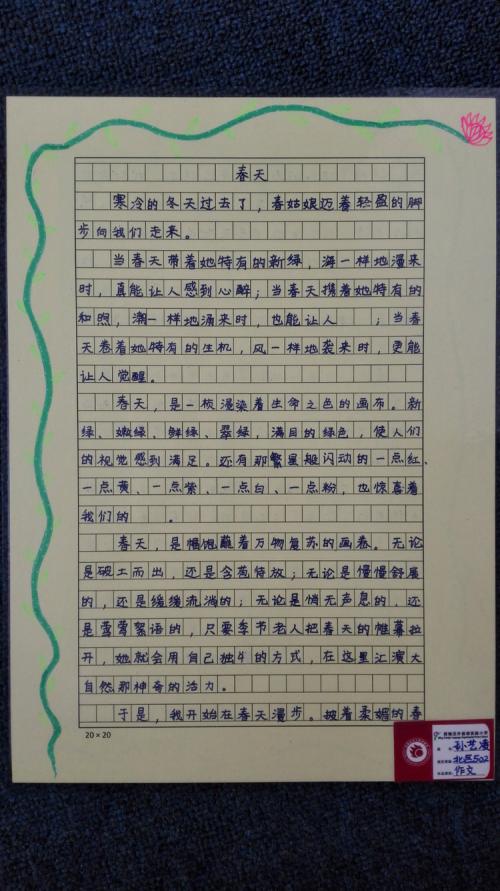 春天
寒冷的冬天过去了，春姑娘迈着轻盈的脚
步向我们走来。
当春天带着她特有的新绿，海一样地漫来
时，真能让人感到心醉；当春天携着她特有的
和煦，潮一样地涌来时，也能让人　　；当春
天卷着她特有的生机，风一样地袭来时，更能
让人觉醒。
春天，是一枚浸染着生命之色的画布。新
绿、嫩绿、鲜绿、翠绿，满目的绿色，使人们
的视觉感到满足。还有那繁星般闪动的一点红、
一点黄、一点紫、一点白、一点粉，也惊喜着
我们的　　。
春天，是幅饱蘸着万物复苏的画卷。无论
是破土而出，还是含苞待放；无论是慢慢舒展
的，还是缓缓流淌的；无论是悄无声息的，还
是莺莺絮语的，只要季节老人把春天的帷幕拉
开，她就会用自己独斗的方式，在这里汇演大
自然那神奇的活力。
于是，我开始在春天漫步。披着柔媚的春
20×20
孙艺
北区502
作文